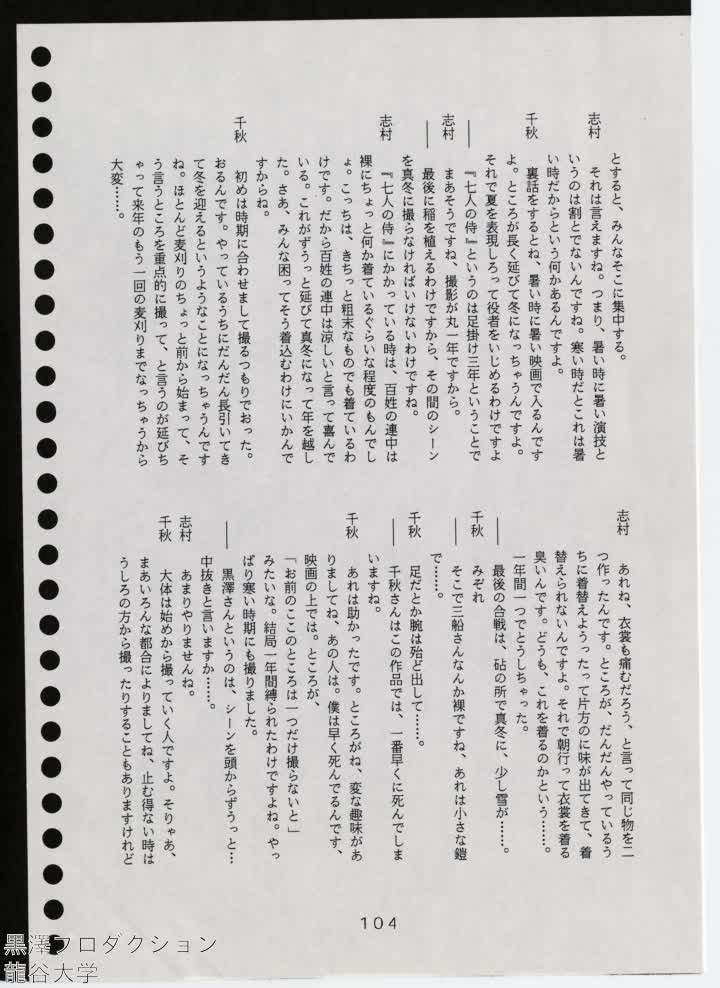 とすると、みんなそこに集中する。
志村　それは言えますね。つまり、暑い時に暑い演技と
いうのは割とでないんですね。寒い時だとこれは暑
い時だからという何かあるんですよ。
千秋　裏話をするとね、暑い時に暑い映画で入るんです
よ。ところが長く延びて冬になっちゃうんですよ。
それで夏を表現しろって役者をいじめるわけですよ
――『七人の侍』というのは足掛け三年ということで
志村　まあそうですね、撮影が丸一年ですから。
――最後に稲を植えるわけですから、その間のシーン
を真冬に撮らなければいけないわけですね。
志村　『七人の侍』にかかっている時は、百姓の連中は
裸にちょっと何か着ているぐらいな程度のもんでし
ょ。こっちは、きちっと粗末なものでも着ているわ
けです。だから百姓の連中は涼しいと言って喜んで
いる。これがずうっと延びて真冬になって年を越し
た。さあ、みんな困ってそう着込むわけにいかんで
すからね。
千秋　初めは時期に合わせまして撮るつもりでおった。
おるんです。やっているうちにだんだん長引いてき
て冬を迎えるというようなことになっちゃうんです
ね。ほとんど麦刈りのちょっと前から始まって、そ
う言うところを重点的に撮って、と言うのが延びち
ゃって来年のもう一回の麦刈りまでなっちゃうから
大変……。
志村　あれね、衣裳も痛むだろう、と言って同じ物を二
つ作ったんです。ところが、だんだんやっているう
ちに着替えようったって片方のに味が出てきて、着
替えられないんですよ。それで朝行って衣裳を着る
臭いんです。どうも、これを着るのかという……。
一年間一つでとうしちゃった。
――最後の合戦は、砧の所で真冬に、少し雪が……。
千秋　みぞれ
――そこで三船さんなんか裸ですね、あれは小さな鎧
で……。
千秋　足だとか腕は殆ど出して……。
――千秋さんはこの作品では、一番早くに死んでしま
いますね。
千秋　あれは助かったです。ところがね、変な趣味があ
りましてね、あの人は。僕は早く死んでるんです、
映画の上では。ところが、
「お前のここのところは一つだけ撮らないと」
みたいな。結局一年間縛られたわけですよね。やっ
ぱり寒い時期にも撮りました。
――黒澤さんというのは、シーンを頭からずうっと…
中抜きと言いますか……。
志村　あまりやりませんね。
千秋　大体は始めから撮っていく人ですよ。そりゃあ、
まあいろんな都合によりましてね、止む得ない時は
うしろの方から撮ったりすることもありますけれど
104
黒澤プロダクション
龍谷大学